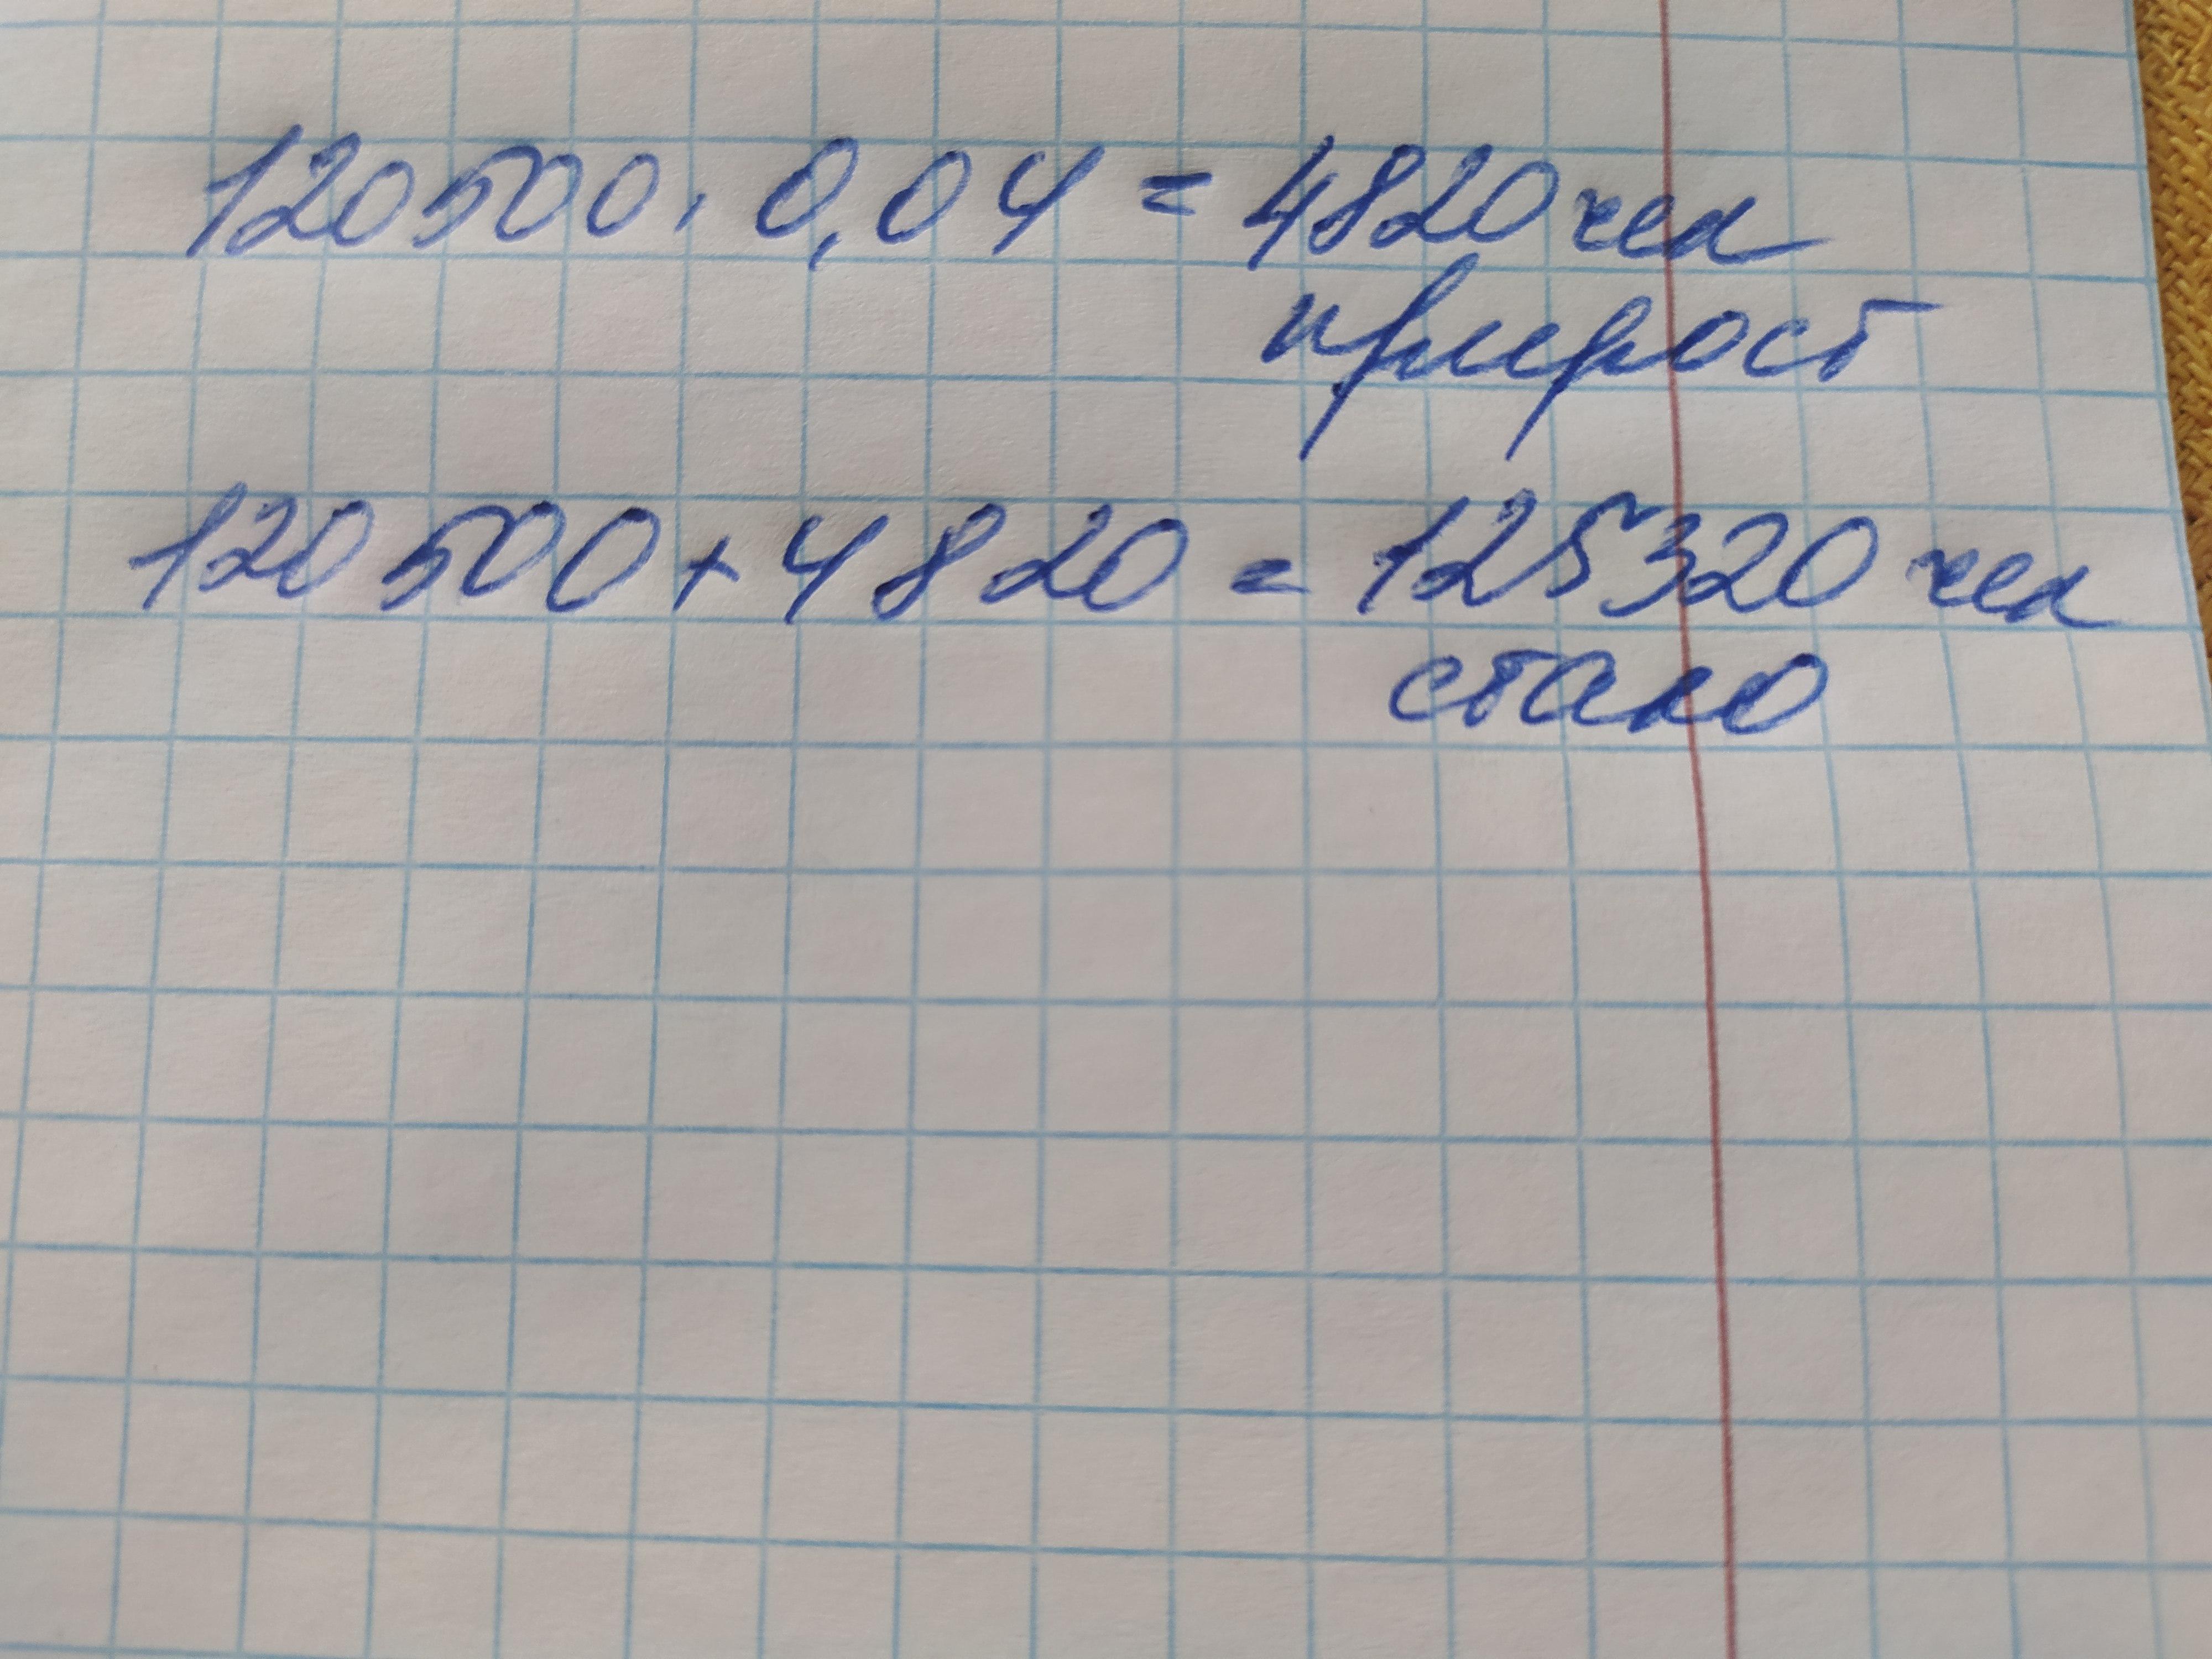 120500 · 0,04 = 4820 чел
прирост
120500 + 4820 = 125320 чел
стало